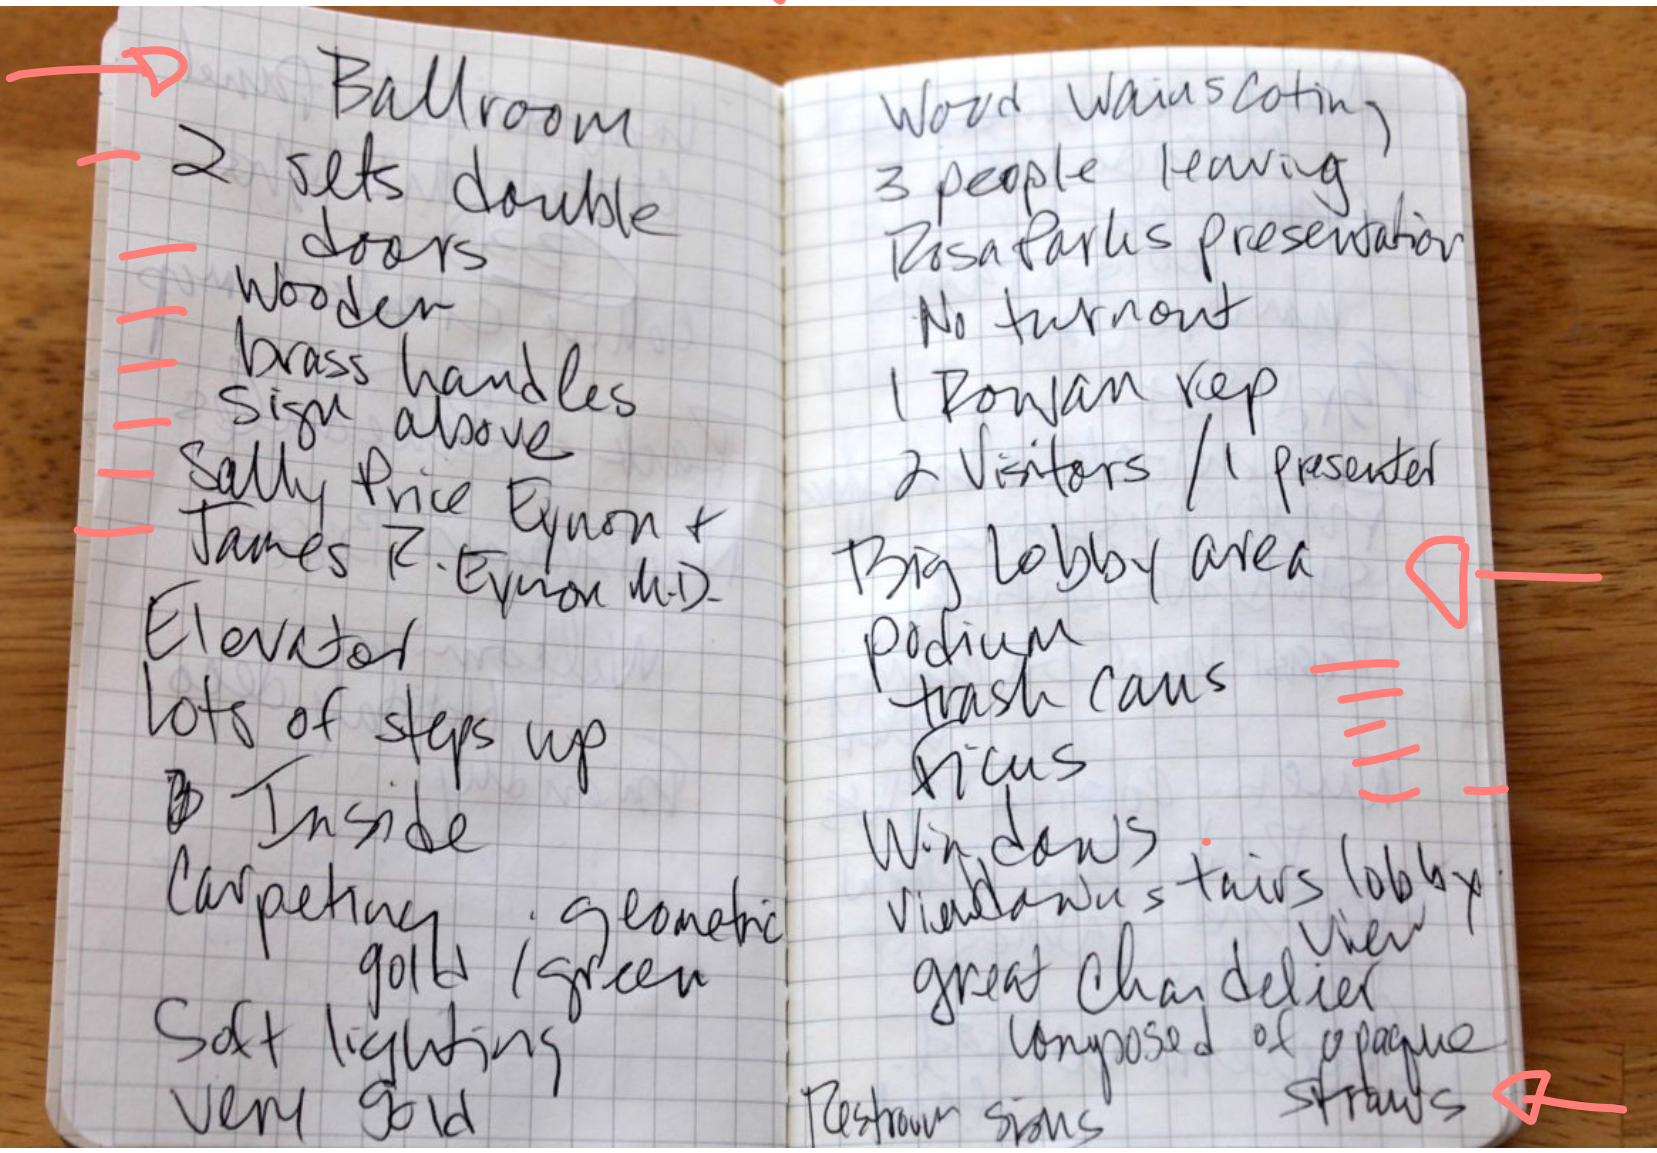 Ballroom
2 sets double
doors
Wooden
brass handles
Sign above
Sally Price Eynon +
James R. Eynon M.D.
Elevator
lots of steps up
Inside
Carpeting . geometric
gold / green
Soft lighting
very gold
Wood Wainscoting
3 people leaving
Rosa Parks presentation
No turnout
1 Rowan rep
2 Visitors / 1 presenter
Big lobby area
podium
trash cans
ficus
Windows
view downstairs lobby
view
great Chandelier
composed of opaque
straws
Restroom signs